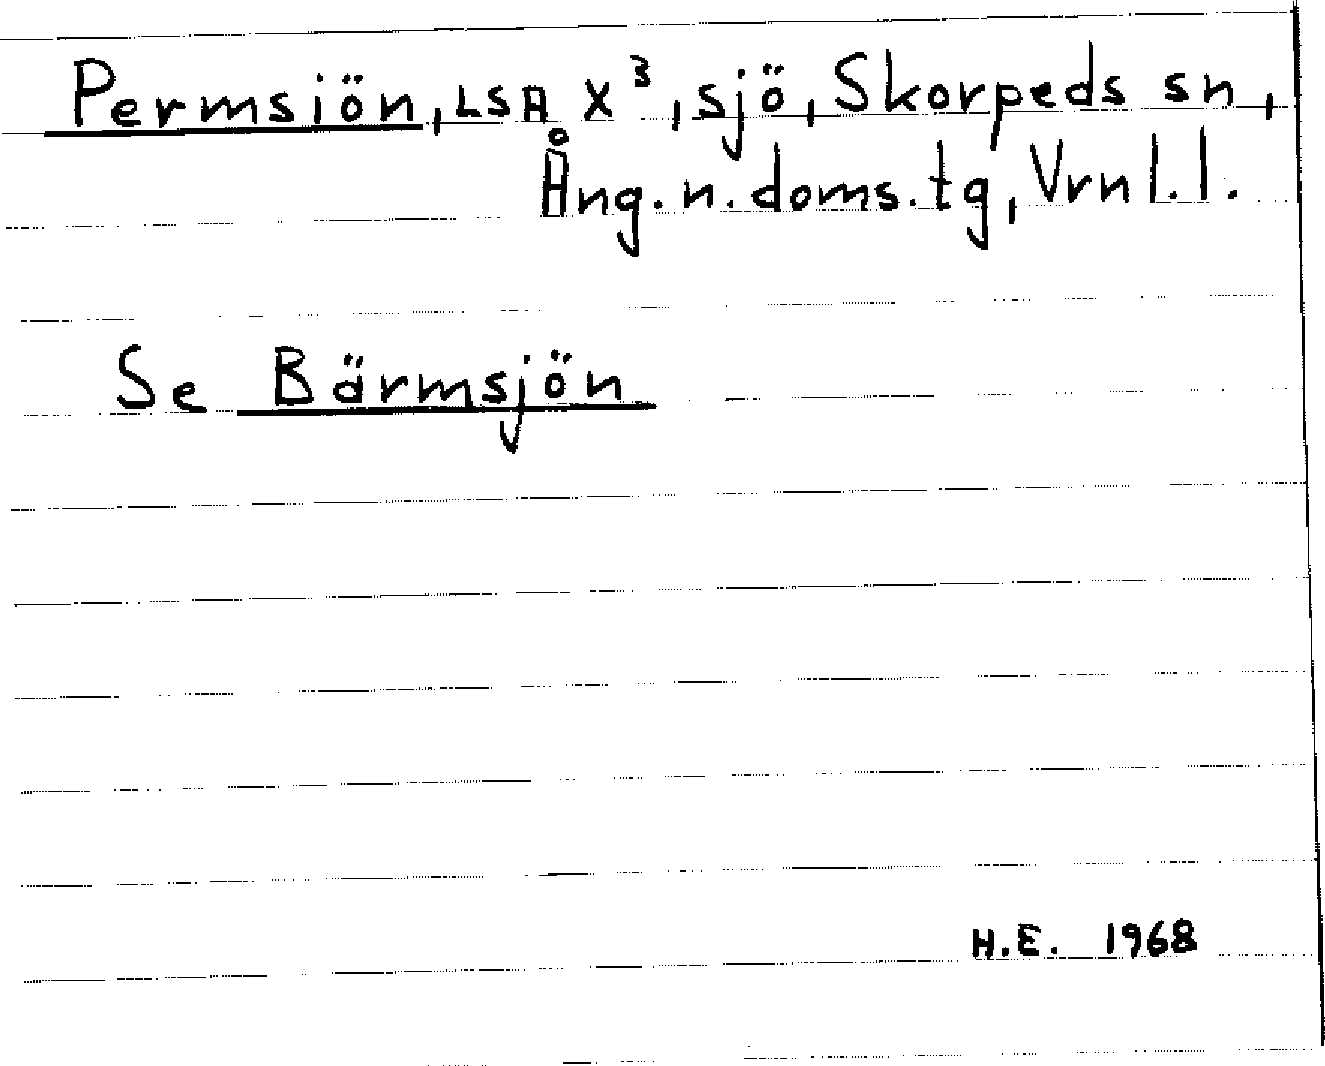 Permsiön, LSA X³, sjö, Skorpeds sn,
Ång. n. doms. tg, Vrnl. l.
Se Bärmsjön
H.E. 1968